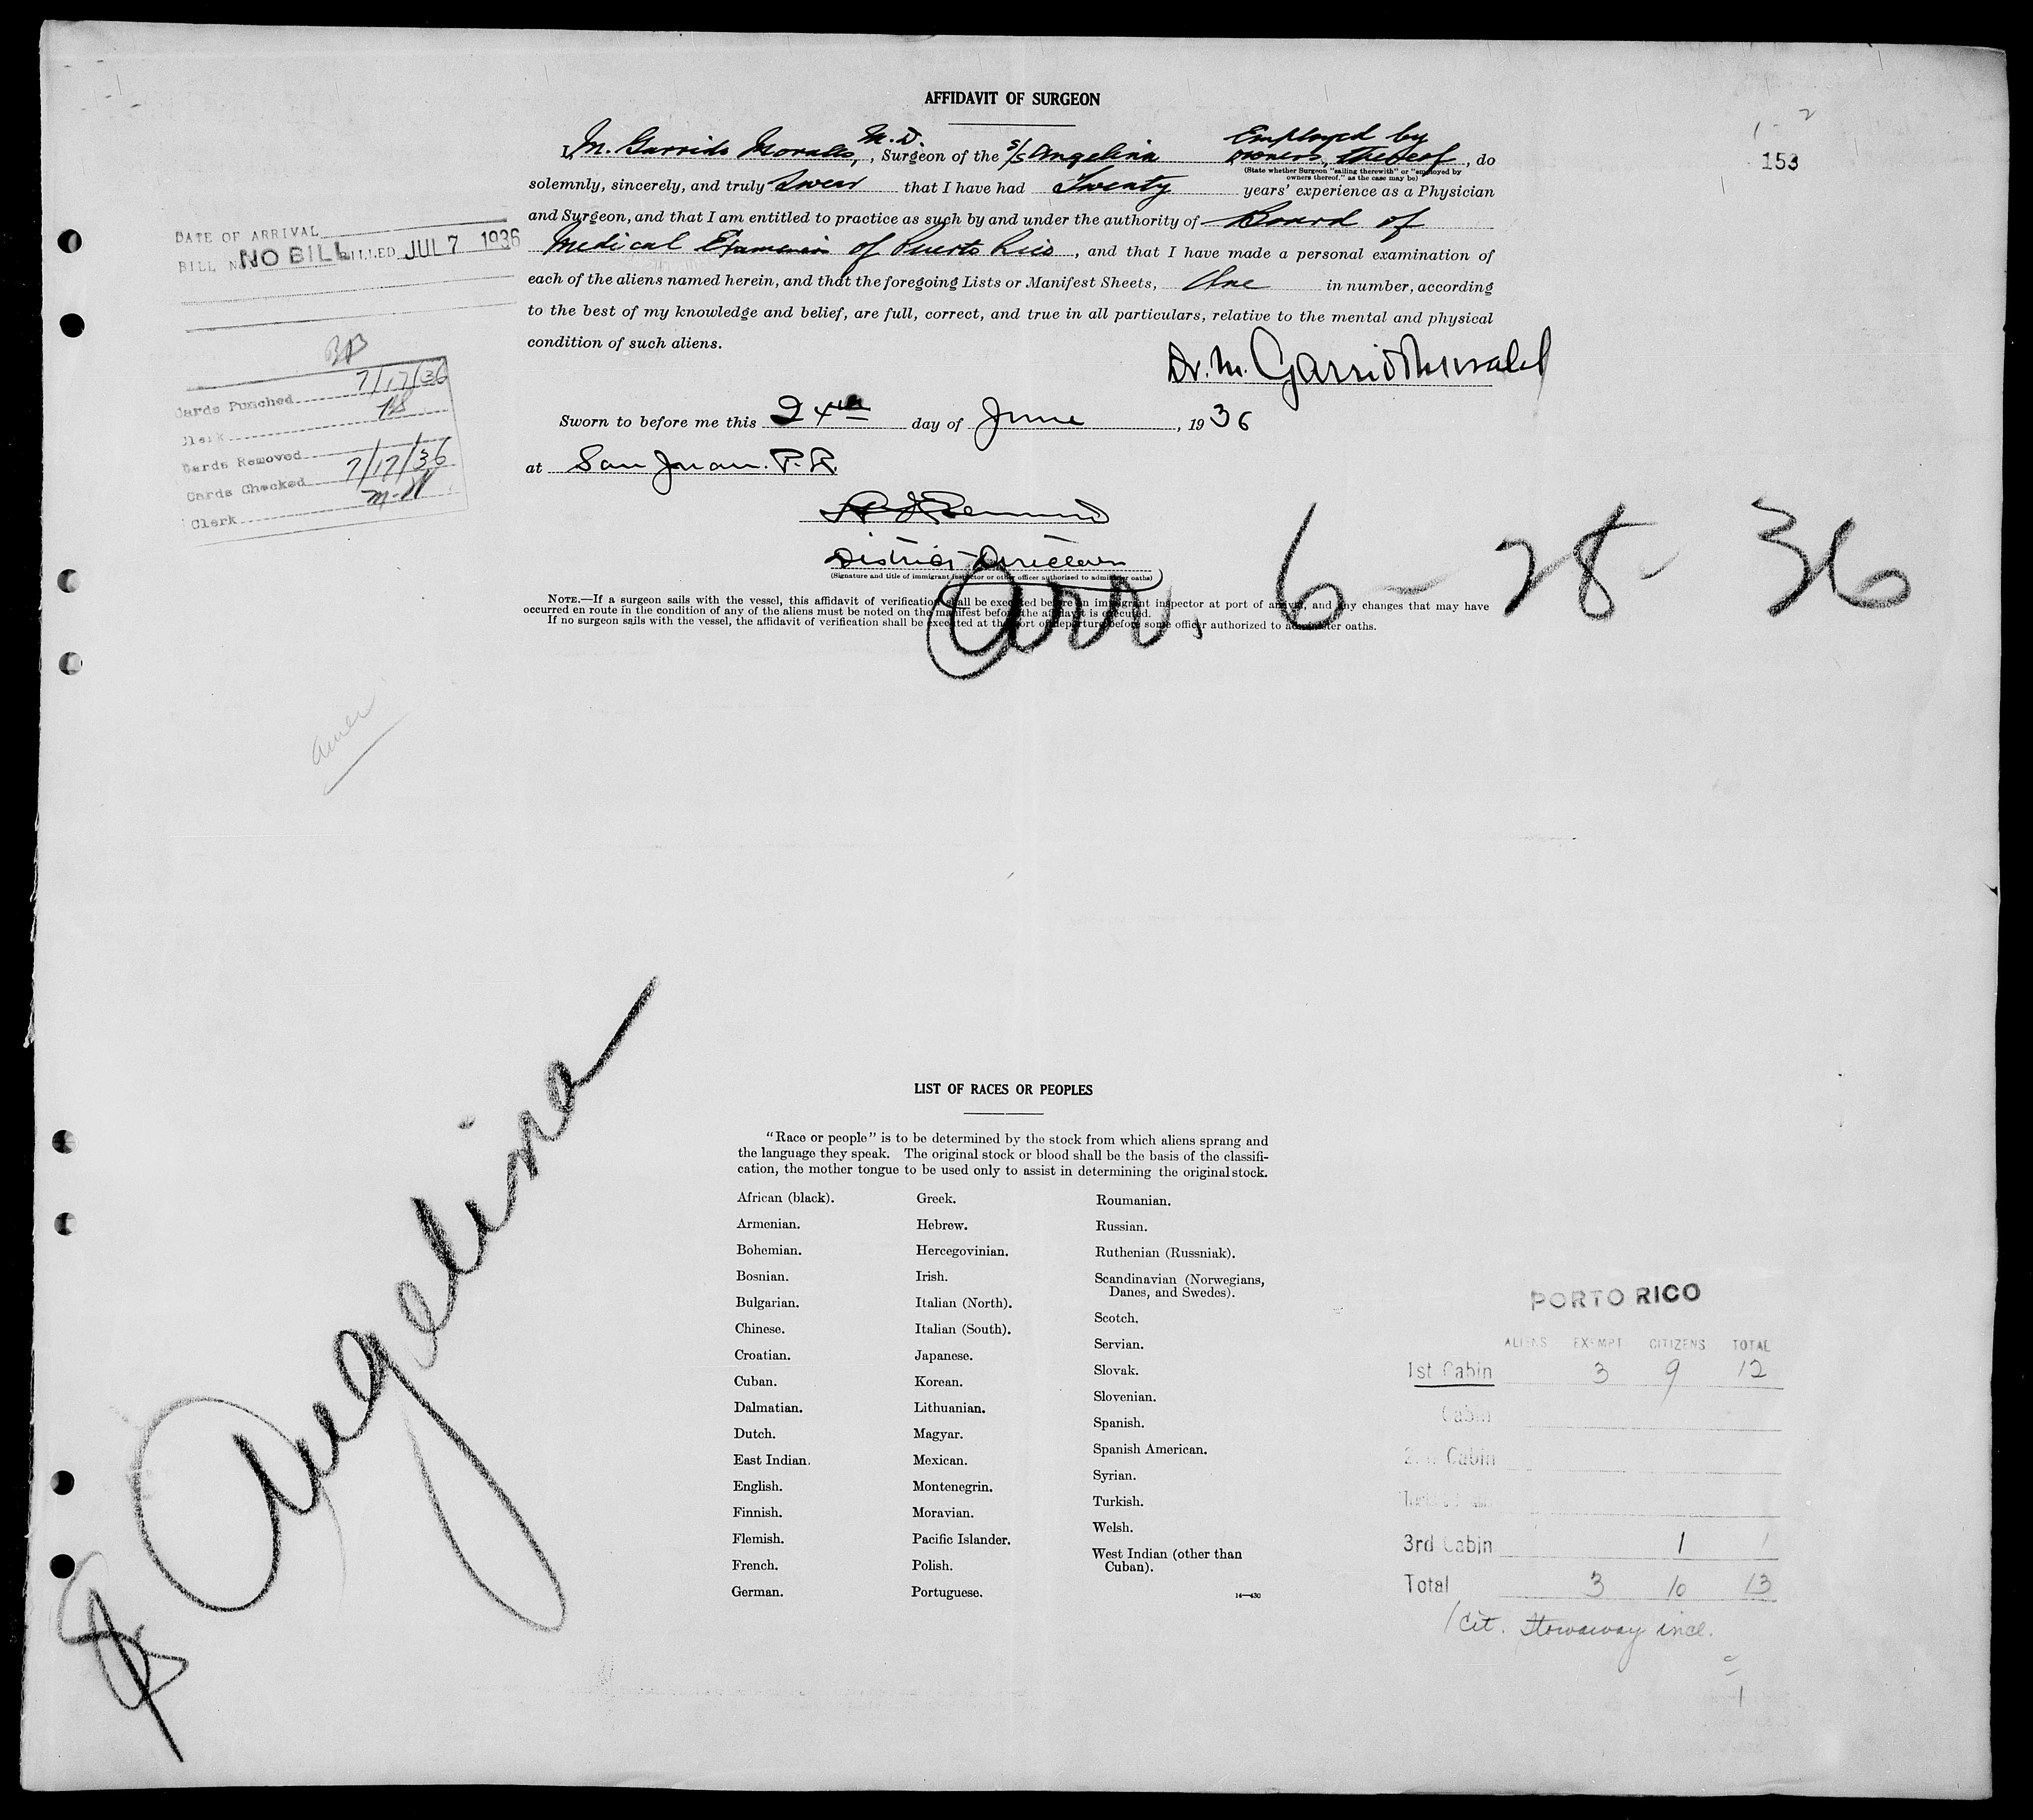 AFFIDAVIT OF SURGEON
153
I, M. Garrido Morales, M.D., Surgeon of the S/S Angelina Employed by owners, thereof, do
(State whether Surgeon "sailing therewith" or "employed by
owners thereof," as the case may be)
solemnly, sincerely, and truly swear that I have had Twenty years' experience as a Physician
and Surgeon, and that I am entitled to practice as such by and under the authority of Board of
Medical Examiners of Puerto Rico, and that I have made a personal examination of
each of the aliens named herein, and that the foregoing Lists or Manifest Sheets, One in number, according
to the best of my knowledge and belief, are full, correct, and true in all particulars, relative to the mental and physical
condition of such aliens.
Dr. M. Garrido Morales
Sworn to before me this 24th day of June, 1936
at San Juan. P.R.
District Director
(Signature and title of immigrant inspector or other officer authorized to administer oaths)
NOTE.—If a surgeon sails with the vessel, this affidavit of verification shall be executed before an immigrant inspector at port of arrival, and any changes that may have
occurred en route in the condition of any of the aliens must be noted on the manifest before the affidavit is executed.
If no surgeon sails with the vessel, the affidavit of verification shall be executed at the port of departure before some officer authorized to administer oaths.
Arr. 6-28-36
DATE OF ARRIVAL
BILL No. NO BILL BILLED JUL 7 1936
Cards Punched 7/17/36
Clerk
Cards Removed
Cards Checked 7/17/36
Clerk
Angelina
LIST OF RACES OR PEOPLES
"Race or people" is to be determined by the stock from which aliens sprang and
the language they speak. The original stock or blood shall be the basis of the classifi-
cation, the mother tongue to be used only to assist in determining the original stock.
African (black).
Armenian.
Bohemian.
Bosnian.
Bulgarian.
Chinese.
Croatian.
Cuban.
Dalmatian.
Dutch.
East Indian.
English.
Finnish.
Flemish.
French.
German.
Greek.
Hebrew.
Hercegovinian.
Irish.
Italian (North).
Italian (South).
Japanese.
Korean.
Lithuanian.
Magyar.
Mexican.
Montenegrin.
Moravian.
Pacific Islander.
Polish.
Portuguese.
Roumanian.
Russian.
Ruthenian (Russniak).
Scandinavian (Norwegians,
Danes, and Swedes).
Scotch.
Servian.
Slovak.
Slovenian.
Spanish.
Spanish American.
Syrian.
Turkish.
Welsh.
West Indian (other than
Cuban).
14—430
PORTO RICO
ALIENS EXEMPT CITIZENS TOTAL
1st Cabin 3 9 12
Cabin
2nd Cabin
3rd Cabin 1 1
Total 3 10 13
1 cit. Stowaway incl.